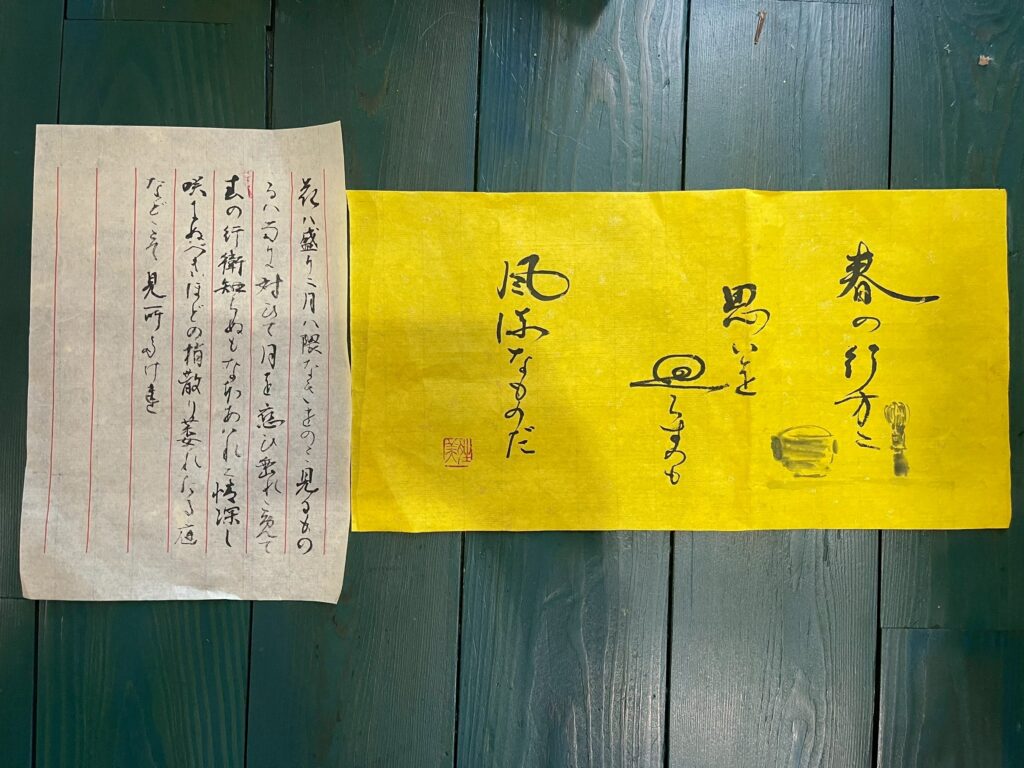 春の行方に
思いを
廻らすのも
風流なものだ
花ハ盛りに月ハ隈なきをのみ見るもの
かハ雨に対ひて月を恋ひ垂れこめて
春の行衛知らぬもなほあハれに情深し
咲きぬべきほどの梢散り萎れたる庭
などこそ見所多けれ